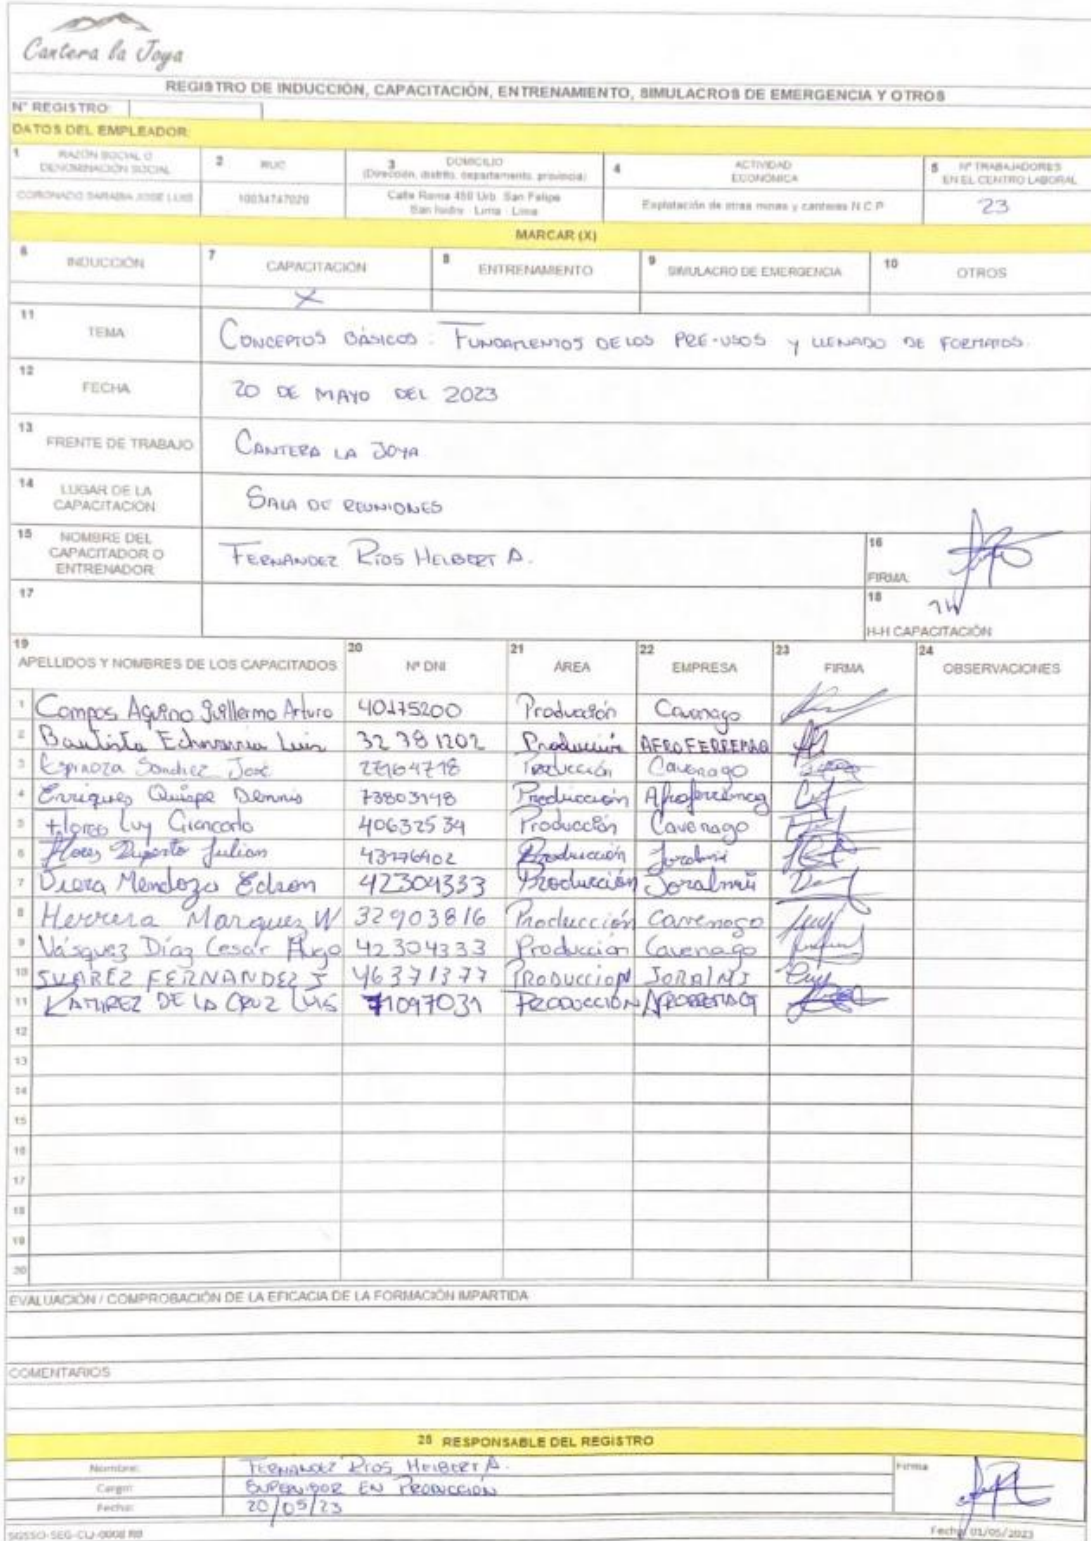 Cantera la Joya
REGISTRO DE INDUCCIÓN, CAPACITACIÓN, ENTRENAMIENTO, SIMULACROS DE EMERGENCIA Y OTROS
N° REGISTRO:
DATOS DEL EMPLEADOR:
1 RAZÓN SOCIAL O DENOMINACIÓN SOCIAL
2 RUC
3 DOMICILIO (Dirección, distrito, departamento, provincia)
4 ACTIVIDAD ECONÓMICA
5 N° TRABAJADORES EN EL CENTRO LABORAL
CORONADO SARABIA JOSE LUIS
Calle Roma 450 Urb. San Felipe
San Isidro - Lima - Lima
Explotación de otras minas y canteras N.C.P.
23
MARCAR (X)
6 INDUCCIÓN 7 CAPACITACIÓN 8 ENTRENAMIENTO 9 SIMULACRO DE EMERGENCIA 10 OTROS
X
11 TEMA CONCEPTOS BÁSICOS: FUNDAMENTOS DE LOS PRE-USOS y LLENADO DE FORMATOS.
12 FECHA 20 DE MAYO DEL 2023
13 FRENTE DE TRABAJO CANTERA LA JOYA
14 LUGAR DE LA CAPACITACIÓN SALA DE REUNIONES
15 NOMBRE DEL CAPACITADOR O ENTRENADOR FERNANDEZ RIOS HELBERT A.
16 FIRMA:
17
18 H-H CAPACITACIÓN
19 APELLIDOS Y NOMBRES DE LOS CAPACITADOS 20 N° DNI 21 ÁREA 22 EMPRESA 23 FIRMA 24 OBSERVACIONES
1 Campos Aquino Guillermo Arturo 40175200 Producción Cavenago
2 Bautista Echevarria Luis 32381202 Producción AFROFERREMAQ
3 Espinoza Sanchez José Producción Cavenago
4 Enriquez Quispe Dennis 73803198 Producción Afroferremaq
5 Flores Luy Giancarlo 40632534 Producción Cavenago
6 Flores Julian 43776402 Producción Joralmi
7 Mendoza Edson 42304333 Producción Joralmi
8 Herrera Marquez W 32903816 Producción Cavenago
9 Vásquez Díaz Cesar Hugo 42304333 Producción Cavenago
10 SUAREZ FERNANDEZ J 46371377 PRODUCCION JORALMI
11 RAMIREZ DE LA CRUZ LUIS 71097031 PRODUCCIÓN
12
13
14
15
16
17
18
19
20
EVALUACIÓN / COMPROBACIÓN DE LA EFICACIA DE LA FORMACIÓN IMPARTIDA
COMENTARIOS
25 RESPONSABLE DEL REGISTRO
Nombre: FERNANDEZ RIOS HELBERT A.
Firma
Cargo: SUPERVISOR EN PRODUCCIÓN
Fecha: 20/05/23
Fecha: 01/05/2023